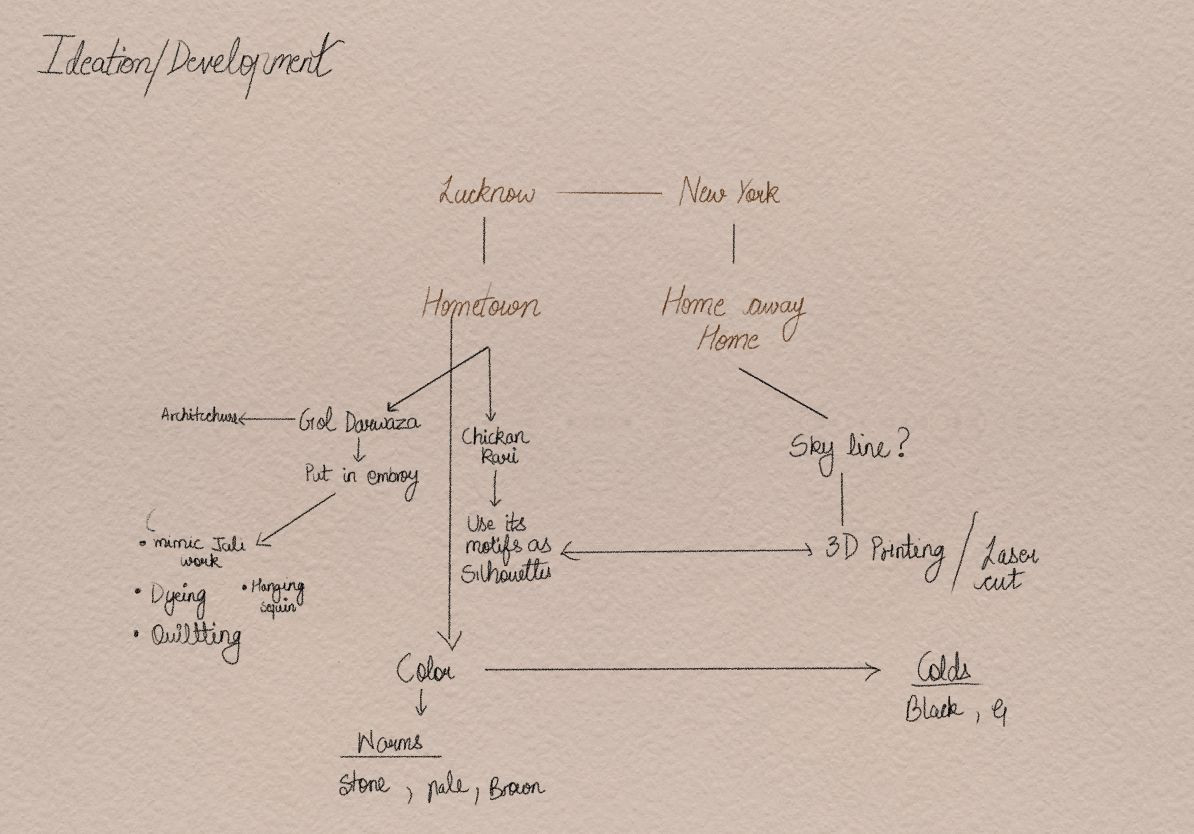 Ideation/Development
Lucknow
New York
Hometown
Home away
Home
Gol Darwaza
Chickan
Kari
Sky line?
Put in embroy
Use its
motifs as
Silhouettes
3D Printing / Laser
cut
• mimic Jali
work
• Dyeing
• Hanging
sequin
• Quiltting
Color
Colds
Black, G
Warms
Stone, pale, Brown